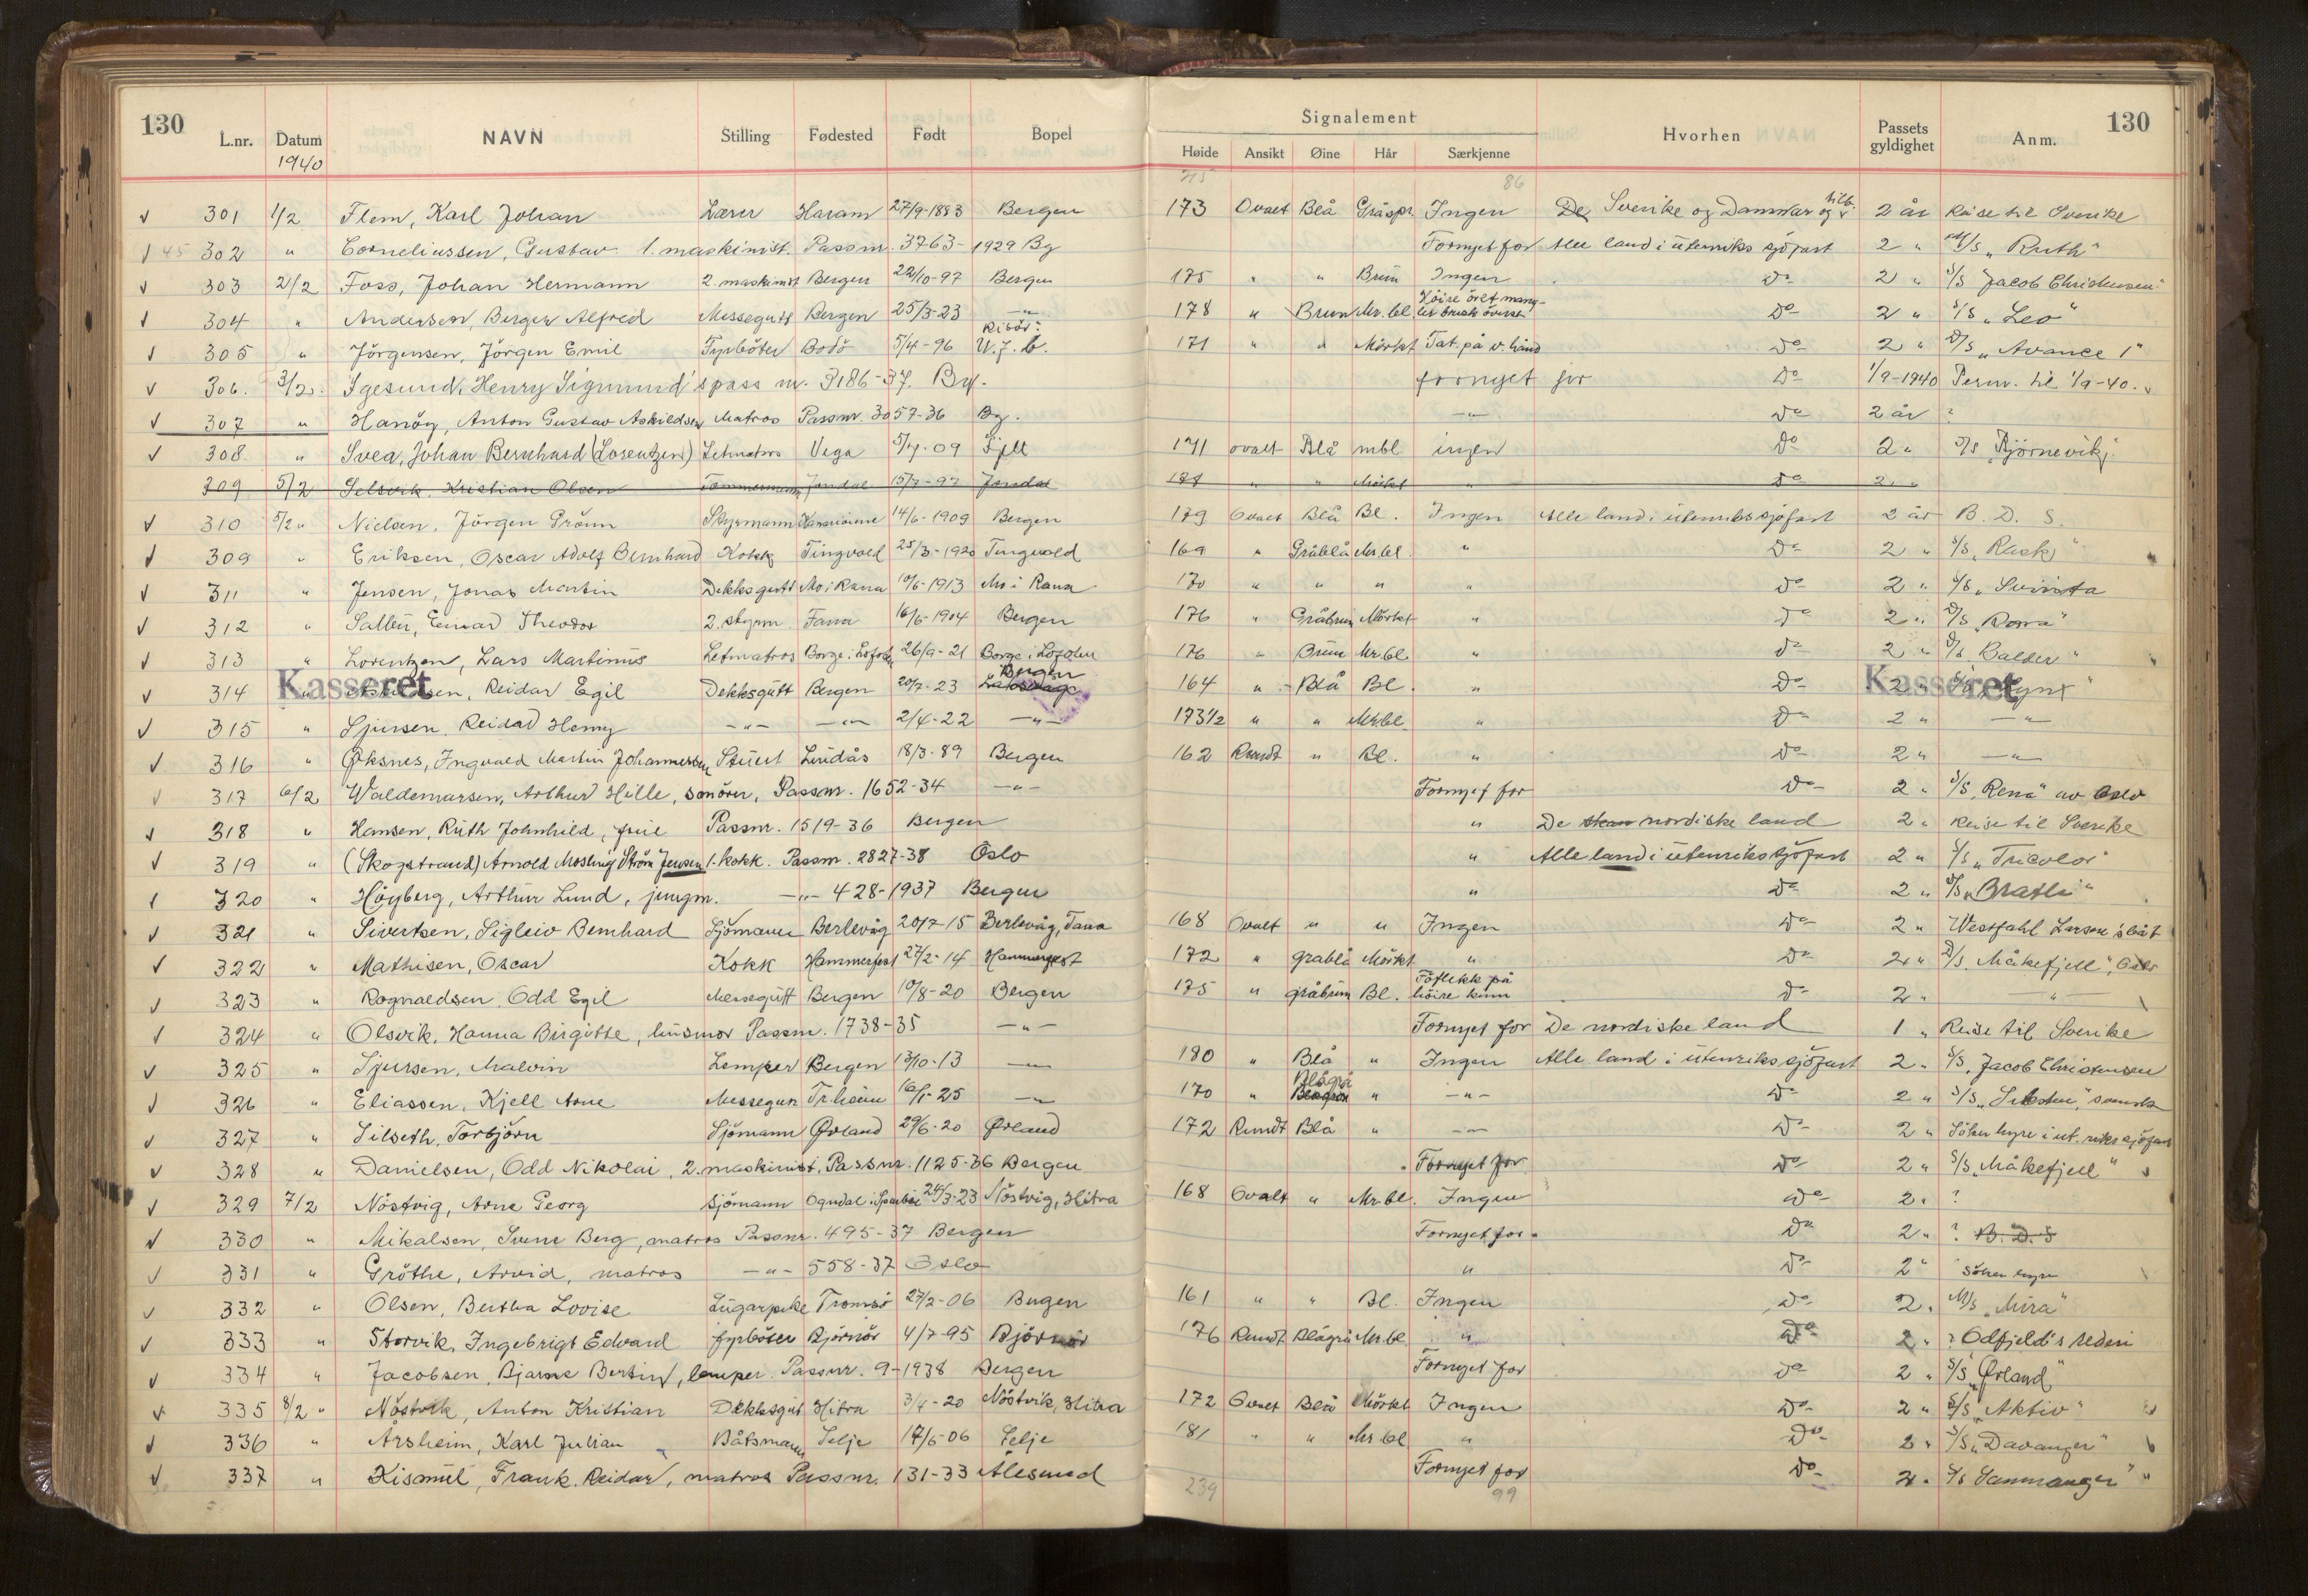 130 130
Signalement
L.nr. Datum NAVN Stilling Fødested Født Bopel Høide Ansikt Øine Hår Særkjenne Hvorhen Passets gyldighet Anm.
1940
86
301 1/2 Flem, Karl Johan Lærer Haram 27/9-1883 Bergen 173 Ovalt Blå Gråspr. Ingen De Sverike og Danmar og tilb. 2 år Reise til Sverike
45 302 " Corneliussen, Gustav 1. maskinist. Passnr. 3763-1929 Bg Fornyet for Alle land i utenriks sjöfart 2 " M/S „Ruth"
303 2/2 Foss, Johan Hermann 2. maskinist Bergen 22/10-97 Bergen 175 " " Brun Ingen Do 2 " S/S Jacob Christensen"
304 " Andersen, Berger Alfred Messegutt Bergen 25/3-23 -"- 178 " Brun Mr.bl. Höire öret mangler brusk överst Do 2 " S/S „Leo"
305 " Jörgensen, Jörgen Emil Fyrböter Bodö 5/4-96 Risör 171 " " Mörkt Tat. på v. hånd Do 2 " D/S „Avance 1"
306. 3/2. Igesund, Henry Sigmund's pass nr. 3186-37. Bg. fornyet for Do 1/9-1940 Perm. til 1/9-40.
307 " Hanöy, Anton Gustav Askildsen Matros Passnr. 3057-36 Bg. -"- Do 2 år ?
308. " Svea, Johan Bernhard (Lorentzen) Letmatros Vega 5/7-09 Fjell 171 ovalt Blå mbl. ingen Do 2 " D/S „Björnevik"
309 5/2 Selsvik, Kristian Olsen Tømmermann Jondal 15/7-97 Jondal " " Mörkt " Do 2 "
310 5/2 " Nielsen, Jörgen Grönn Styrmann 14/6-1909 Bergen 179 Ovalt Blå Bl. Ingen Alle land i utenriks sjöfart 2 år B. D. S.
309 " Eriksen, Oscar Adolf Bernhard Kokk Tingvold 25/3-1920 Tingvold 169 " Gråblå Mr.bl. " Do 2 " S/S „Rask"
311 " Jensen, Jonas Martin Dekksgutt Mo i Rana 10/6-1913 Mo i Rana 170 " " " " Do 2 " S/S „Svinta
312 " Sallen, Einar Theodor 2. styrm. Fana 16/6-1904 Bergen 176 " Gråbrun Mörkt " Do 2 " D/S „Roma"
313 " Lorentzen, Lars Martinus Letmatros Borge i Lofoten 26/9-21 Borge i Lofoten 176 " Brun Mr.bl. " Do 2 " D/S „Balder"
Kasseret Kasseret
314 " Reidar Egil Dekksgutt Bergen 20/7-23 Bergen 164 " Blå Bl. " Do 2 " „Lynx"
315 " Sjursen, Reidar Henry -"- -"- 2/4-22 -"- 173 1/2 " " Mr.bl. " Do 2 " -"-
316 " Øksnes, Ingvald Martin Johannessen Stuert Lindås 18/3-89 Bergen 162 Rundt " Bl. " Do 2 " -"-
317 6/2 Waldemarsen, Arthur Hille, smörer, Passnr. 1652-34 -"- Fornyet for Do 2 " S/S „Rena" av Oslo
318 " Hansen, Ruth Johnhild, frue Passnr. 1519-36 Bergen " De nordiske land 2 " Reise til Sverike
319 " (Skogstrand) Arnold Mosling Ström Jensen 1. kokk. Passnr. 2827-38 Oslo " Alle land i utenriks sjöfart 2 " S/S „Tricolor"
320 " Höyberg, Arthur Lund, jungm. -"- 428-1937 Bergen " Do 2 " D/S „Bratli"
321 " Sivertsen, Sigleiv Bernhard Sjömann Berlevåg 20/7-15 Berlevåg, Tana 168 Ovalt " " Ingen Do 2 " Westfahl Larsens båt
322 " Mathisen, Oscar Kokk Hammerfest 27/2-14 Hammerfest 172 " gråblå Mörkt " Do 2 " D/S „Måkefjell", Oslo
323 " Rognaldsen, Odd Egil Messegutt Bergen 10/8-20 Bergen 175 " gråbrun Bl. Föflekk på höire kinn Do 2 " -"-
324 " Olsvik, Hanna Birgitte, husmor Passnr. 1738-35 -"- Fornyet for De nordiske land 1 " Reise til Sverike
325 " Sjursen, Malvin Lemper Bergen 13/10-13 -"- 180 " Blå " Ingen Alle land i utenriks sjöfart 2 " S/S „Jacob Christensen
326 " Eliassen, Kjell Arne Messegutt Tr.heim 16/1-25 -"- 170 " Blågrå " -"- Do 2 " S/S
327 " Silseth, Torbjörn Sjömann Ørland 29/6-20 Ørland 172 Rundt Blå " -"- Do 2 " Söker hyre i ut. riks sjöfart
328 " Danielsen, Odd Nikolai, 2. maskinist, Passnr. 1125-36 Bergen Fornyet for Do 2 " S/S „Måkefjell"
329 7/2 Nöstvig, Arne Georg Sjömann Ogndal i Sparbu 24/3-23 Nöstvig, Hitra 168 Ovalt " Mr.bl. Ingen Do 2 " ?
330 " Mikalsen, Sverre Berg, matros Passnr. 495-37 Bergen Fornyet for Do 2 " ? B. D. S
331 " Gröthe, Arvid, matros -"- 558-37 Oslo " Do 2 " Söker hyre
332 " Olsen, Bertha Lovise Lugarpike Tromsö 27/2-06 Bergen 161 " " Bl. Ingen Do 2 " M/S „Mira"
333 " Storvik, Ingebrigt Edvard fyrböter Björnör 4/7-95 Björnör 176 Rundt Blågrå Mr.bl. " Do 2 " ? Odfjeld's rederi
334 " Jacobsen, Bjarne Bertin, lemper. Passnr. 9-1938 Bergen Fornyet for Do 2 " S/S „Ørland"
335 8/2 " Nöstvik, Anton Kristian Dekksgut Hitra 3/4-20 Nöstvik, Hitra 172 Ovalt Blå Mörkt Ingen Do 2 " S/S „Aktiv"
336 " Årsheim, Karl Julian Båtsmann Selje 17/6-06 Selje 181 " " Mr.bl " Do 2 " S/S „Davanger"
337 " Kismul, Frank Reidar, matros Passnr. 131-33 Ålesund Fornyet for Do 2 " S/S Samnanger"
239 99